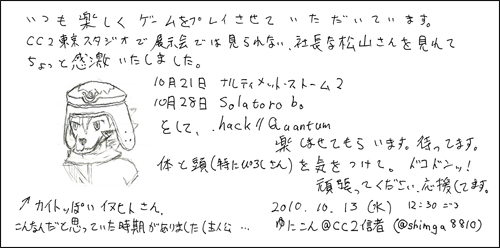 いつも楽しくゲームをプレイさせていただいています。
CC2東京スタジオで展示会では見られない、社長な松山さんを見れて
ちょっと感激いたしました。
10月21日 ナルティメット・ストーム2
10月28日 Solatorobo
そして、.hack//Quantum
楽しませてもらいます。待ってます。
体と頭(特にぴろしさん)を気をつけて。ドコドンッ!
頑張ってください。応援してます。
↗カイトっぽいイヌヒトさん。
こんなんだと思っていた時期がありました(主人公…
2010.10.13(水) 12:30ごろ
ゆにこん@CC2信者(@shimga8810)